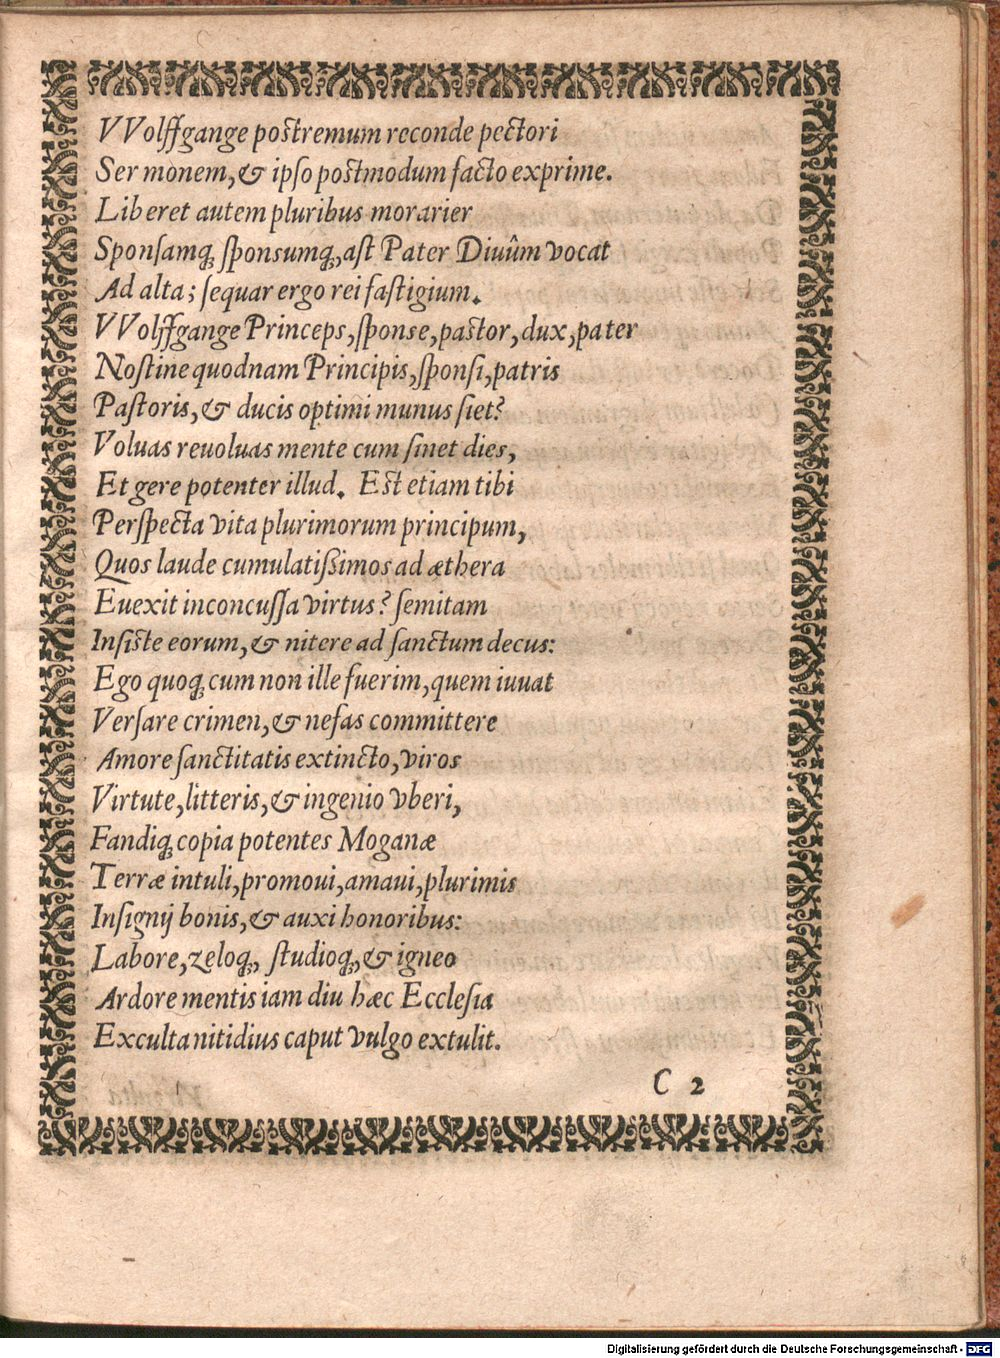 VVolffgange postremum reconde pectori
Ser monem, & ipso postmodum facto exprime.
Liberet autem pluribus morarier
Sponsamq́; sponsumq́;, ast Pater Diuûm vocat
Ad alta; sequar ergo rei fastigium.
VVolffgange Princeps, sponse, pastor, dux, pater
Nostine quodnam Principis, sponsi, patris
Pastoris, & ducis optimi munus siet?
Voluas reuoluas mente cum sinet dies,
Et gere potenter illud. Est etiam tibi
Perspecta vita plurimorum principum,
Quos laude cumulatißimos ad æthera
Euexit inconcussa virtus? semitam
Insiste eorum, & nitere ad sanctum decus:
Ego quoq; cum non ille fuerim, quem iuuat
Versare crimen, & nefas committere
Amore sanctitatis extincto, viros
Virtute, litteris, & ingenio vberi,
Fandiq; copia potentes Moganæ
Terræ intuli, promoui, amaui, plurimis
Insignij bonis, & auxi honoribus:
Labore, zeloq;, studioq;, & igneo
Ardore mentis iam diu hæc Ecclesia
Exculta nitidius caput vulgo extulit.
C 2
Digitalisierung gefördert durch die Deutsche Forschungsgemeinschaft - DFG